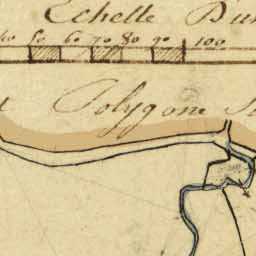 Echelle D'un
50 60 70 80 90 100
Polygone